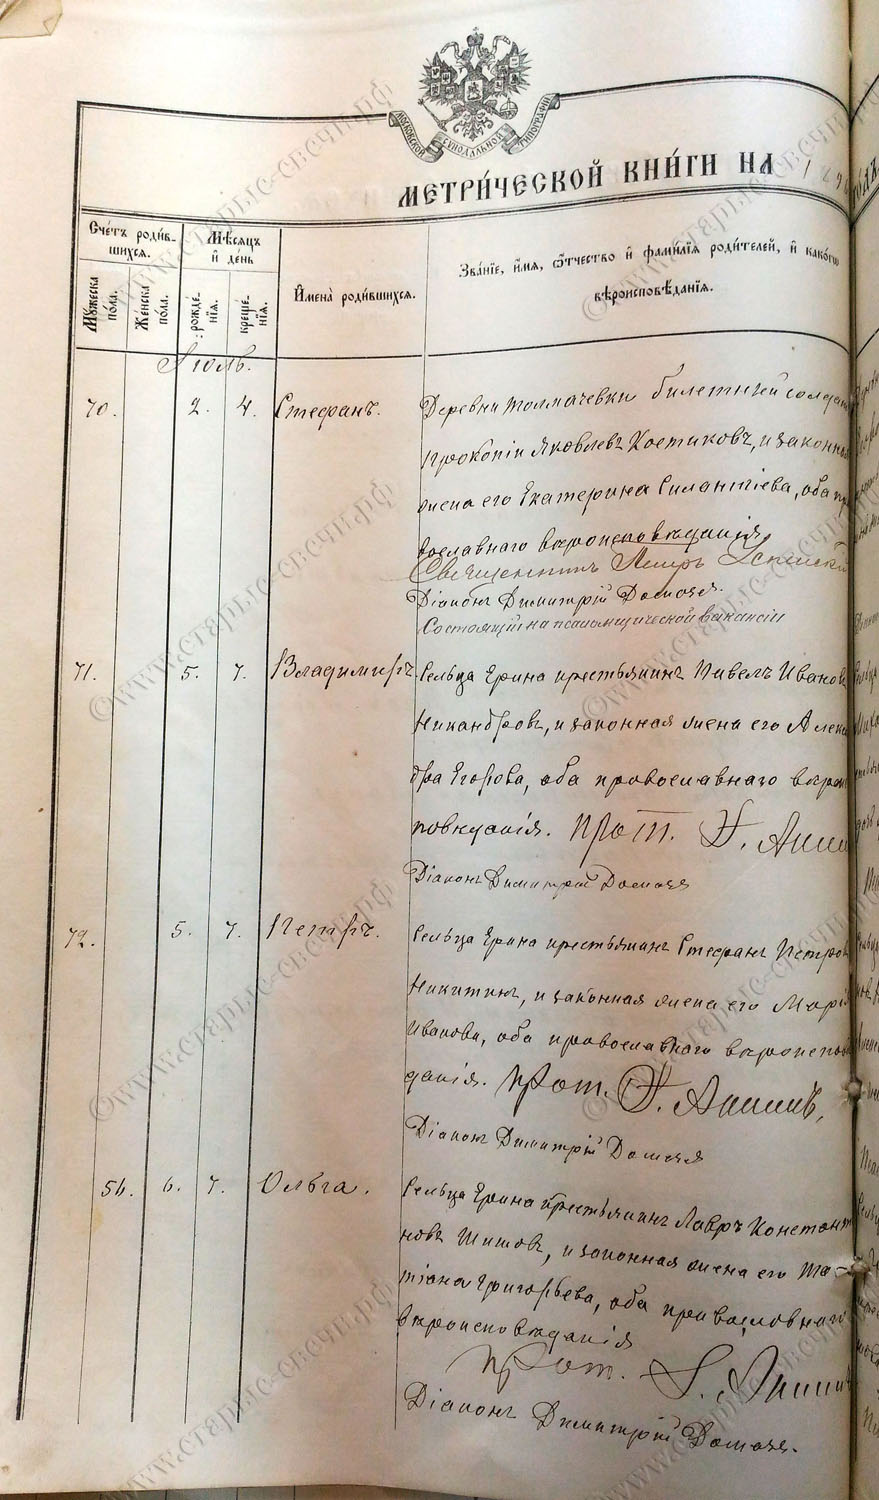 МОСКОВСКОЙ СѴНОДАЛЬНОЙ ТИПОГРАФІИ
МЕТРИ́ЧЕСКОЙ КНИ́ГИ НА
Сче́тъ роди́в-
шихся.
Мꙋ́жеска
по́ла.
Же́нска
по́ла.
Мѣ́сяцъ
и҆ де́нь
рожде́-
нїѧ.
креще́-
нїѧ.
И҆мена̀ роди́вшихся.
Зва́нїе, и҆́мя, ѻ҆́тчество и҆ фами́лїя роди́телей, и҆ како́гѡ
вѣроисповѣ́данїя.
Іюль.
70. 2. 4. Стефанъ. Деревни Толмачевки билетный солдатъ
Прокопій Яковлевъ Костиковъ, и законная
жена его Екатерина Силантіева, оба пра
вославнаго вѣроисповѣданія.
Священникъ Петръ Успенскій
Діаконъ Димитрій
Состоящій на псаломщической вакансіи
71. 5. 7. Владимиръ. Сельца Ерина крестьянинъ Павелъ Ивановъ
Никандровъ, и законная жена его Алекса
дра Егорова, оба православнаго вѣроис
повѣданія. Прот.
Діаконъ Димитрій
72. 5. 7. Петръ. Сельца Ерина крестьянинъ Стефанъ Петровъ
Никитинъ, и законная жена его Марія
Иванова, оба православнаго вѣроисповѣ
данія. Прот.
Діаконъ Димитрій
56. 6. 7. Ольга. Сельца Ерина крестьянинъ Лавръ Константи
новъ Шитовъ, и законная жена его Та-
тіана Григорьева, оба православнаго
вѣроисповѣданія
Прот.
Діаконъ Димитрій
©www.старые-свечи.рф